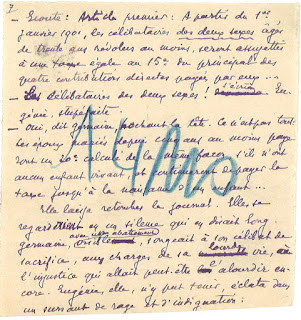 7
— Écoute : Article premier : À partir du 1er
janvier 1901, les célibataires des deux sexes âgés
de trente ans révolus au moins, seront assujettis
à une taxe égale au 15e du principal des
quatre contributions directes payées par eux...
— Les célibataires des deux sexes ! s'écria Eu-
génie, stupéfaite.
— Oui, dit Germaine, hochant la tête. Ce n'est pas tout.
Les époux mariés depuis cinq ans au moins paye-
ront un 20e calculé de la même façon s'ils n'ont
aucun enfant vivant et continueront à payer la
taxe jusqu'à la naissance d'un enfant...
Elle laissa retomber le journal. Elles se
regardèrent en un silence qui en disait long.
Germaine, songeait à son célibat de
sacrifice, aux charges de sa lourde vie, à
l'injustice qui allait peut-être l'alourdir en-
core. Eugénie, elle, n'y put tenir, éclata dans
un sursaut de rage et d'indignation :